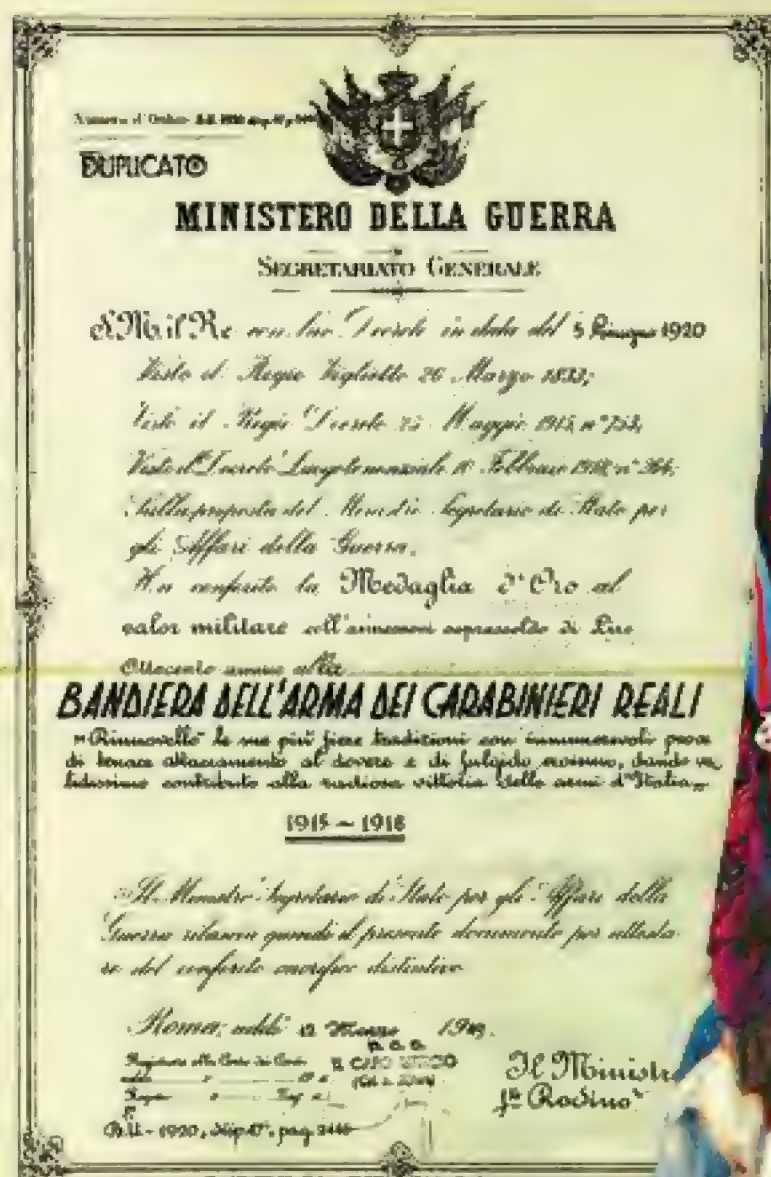 Numero d'Ordine B.U. 1920 disp.
DUPLICATO
MINISTERO DELLA GUERRA
SEGRETARIATO GENERALE
S.M. il Re con Suo Decreto in data del 5 Giugno 1920
Visto il Regio Viglietto 26 Marzo 1833;
Visto il Regio Decreto 25 Maggio 1915, n° 753;
Visto il Decreto Luogotenenziale 10 Febbraio 1918, n° 264;
Sulla proposta del Ministro Segretario di Stato per
gli Affari della Guerra.
Ha conferito la Medaglia d'Oro al
valor militare coll'annesso soprassoldo di Lire
Ottocento annue alla
BANDIERA DELL'ARMA DEI CARABINIERI REALI
"Rinnovellò le sue più fiere tradizioni con innumerevoli prove
di tenace attaccamento al dovere e di fulgido eroismo, dando va
lidissimo contributo alla radiosa vittoria delle armi d'Italia„
1915 - 1918
Il Ministro Segretario di Stato per gli Affari della
Guerra rilascia quindi il presente documento per attesta
re del conferito onorifico distintivo
Roma, addì 12 Marzo
Registrato alla Corte dei Conti
IL CAPO UFFICIO
Il Ministr
fto Rodinò
B.U. - 1920, disp. 47ª, pag. 2446